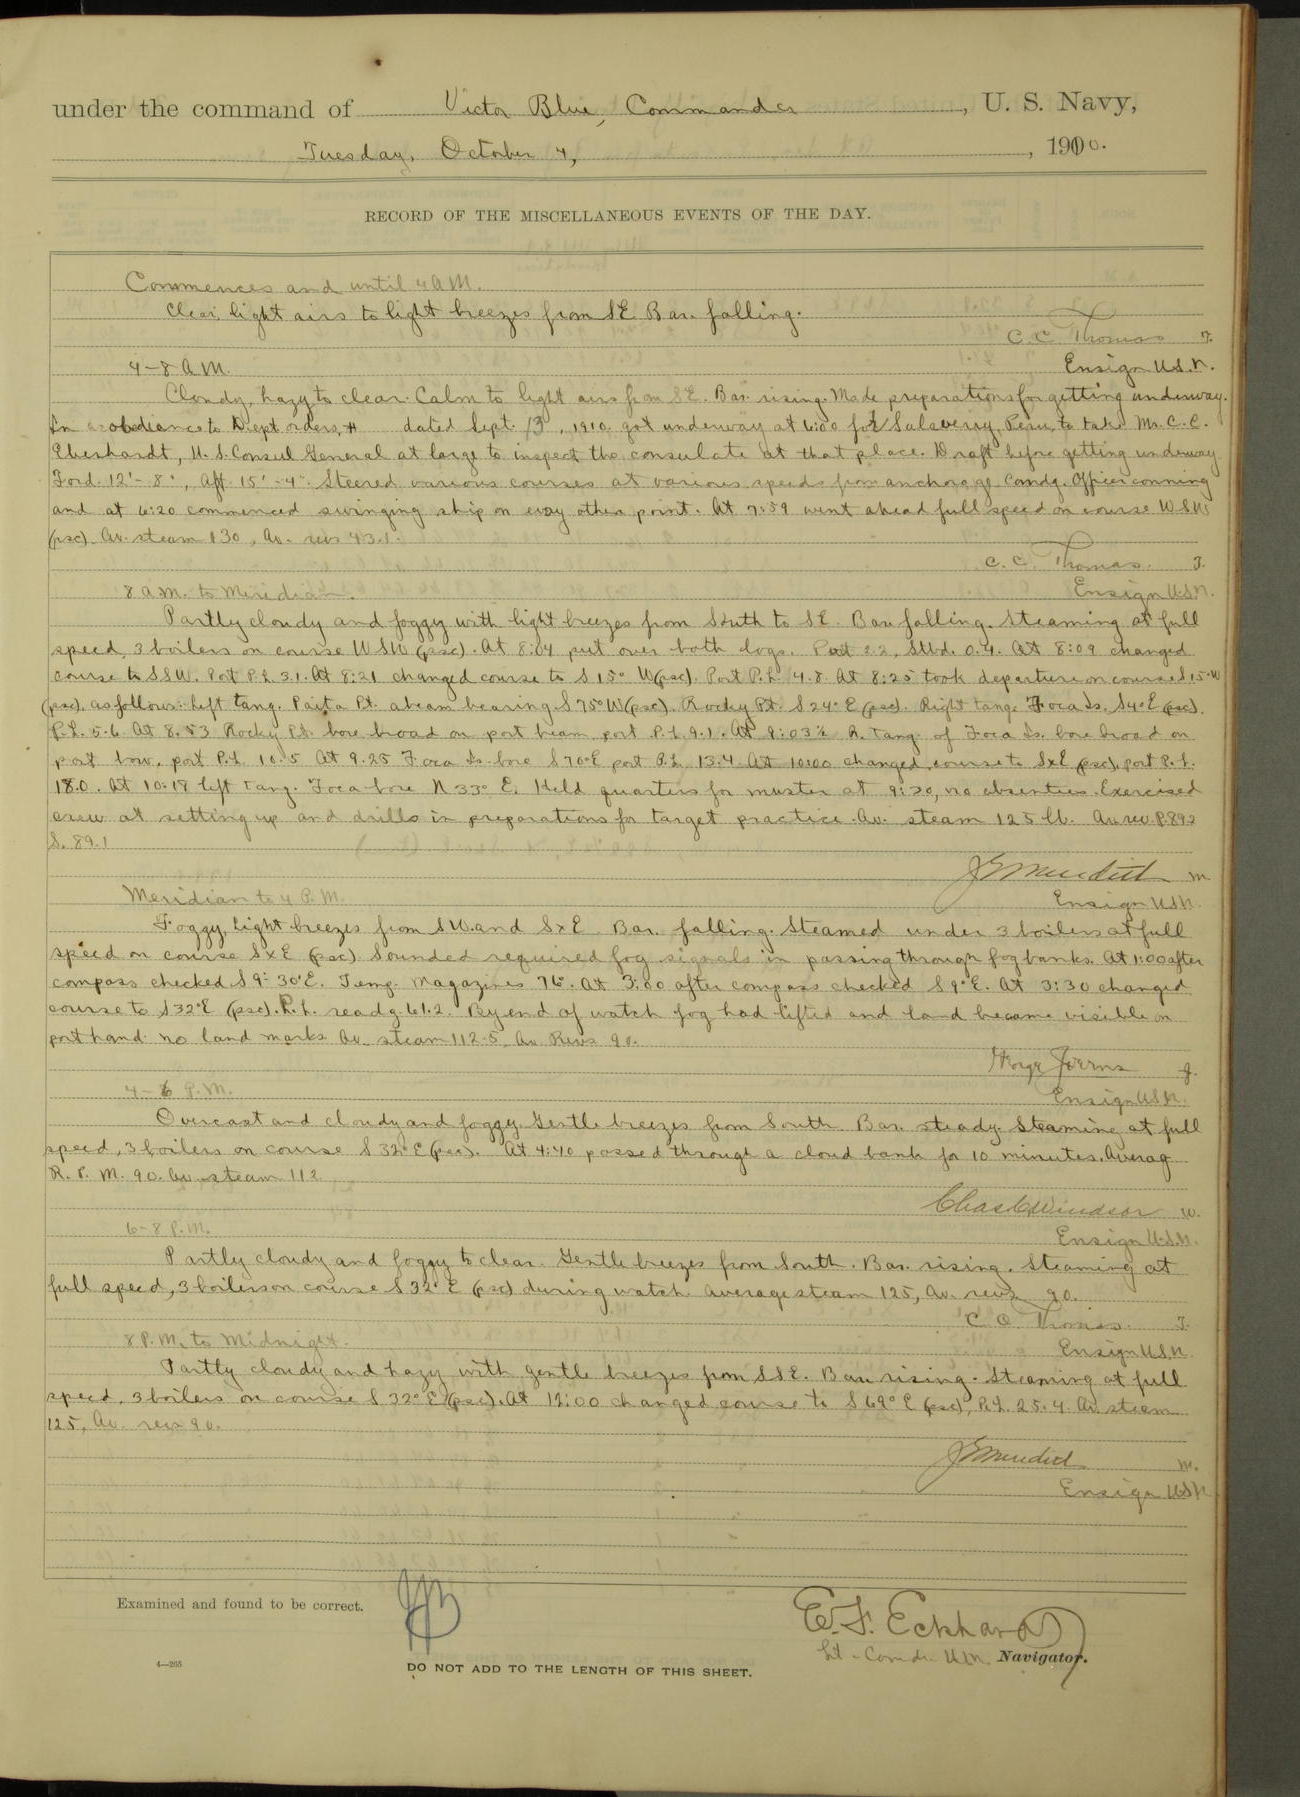 under the command of Victor Blue, Commander, U. S. Navy,
Tuesday, October 4, 1910.
RECORD OF THE MISCELLANEOUS EVENTS OF THE DAY.
Commences and until 4 A.M.
Clear, light airs to light breezes from SE Bar. falling.
C. C. Thomas T.
4-8 A.M. Ensign U.S.N.
Cloudy, hazy to clear. Calm to light airs from SE. Bar. rising. Made preparations for getting underway.
In obedience to Dept orders, # dated Sept. 13, 1910 got underway at 6:00 for Salaverry, Peru, to take Mr. C. C.
Eberhardt, U. S. Consul General at large to inspect the consulate at that place. Draft before getting underway
Ford. 12'-8", Aft 15'-4". Steered various courses at various speeds from anchorage Comdg. Officer conning
and at 6:20 commenced swinging ship on every other point. At 7:59 went ahead full speed on course WSW
(psc). Av. steam 130, Av. revs 43.1.
C. C. Thomas. T.
8 A.M. to Meridian. Ensign U.S.N.
Partly cloudy and foggy with light breezes from South to SE. Bar. falling. Steaming at full
speed, 3 boilers on course WSW (psc). At 8:04 put over both logs. Port 2.2, Stbd. 0.4. At 8:09 changed
course to SSW. Port P.L. 3.1. At 8:21 changed course to S 15° W (psc). Port P.L. 4.8. At 8:25 took departure on course S 15° W
(psc). as follows: Left tang. Paita Pt. abeam bearing S 75° W (psc). Rocky Pt. S 24° E (psc). Right tang. Foca Is. S 4° E (psc).
P.L. 5.6. At 8.53 Rocky Pt. bore broad on port beam port P.L. 9.1. At 9:03½ R. Tang. of Foca Is. bore broad on
port bow, port P.L. 10.5 At 9.25 Foca Is. bore S 70° E port P.L. 13.4 At 10:00 changed course to SxE (psc), port P.L.
18.0. At 10:19 left tang. Foca bore N 33° E. Held quarters for muster at 9:20, no absentees. Exercised
crew at setting up and drills in preparations for target practice. Av. steam 125 lb. Av. rev. P. 89.2
S. 89.1
J S Meredith M
Meridian to 4 P.M. Ensign USN.
Foggy, light breezes from SW. and SxE. Bar. falling. Steamed under 3 boilers at full
speed on course SxE (psc) Sounded required fog signals in passing through fog banks. At 1:00 after
compass checked S 9° 30' E. Temp. Magazines 76°. At 3:00 after compass checked S 9° E. At 3:30 changed
course to S 32° E (psc). P.L. readg. 61.2. By end of watch fog had lifted and land became visible on
port hand. no land marks. Av. steam 112.5, Av Revs 90.
George Joerns J.
4-6 P.M. Ensign U.S.N.
Overcast and cloudy and foggy. Gentle breezes from South. Bar. steady. Steaming at full
speed, 3 boilers on course S 32° E (psc). At 4:40 passed through a cloud bank for 10 minutes. Averag
R. P. M. 90. Av. steam 112
Chas C Windsor W.
6-8 P.M. Ensign U.S.N.
Partly cloudy and foggy to clear. Gentle breezes from South. Bar. rising. Steaming at
full speed, 3 boilers on course S 32° E (psc) during watch. Average steam 125, Av. revs 90.
C. C. Thomas. T.
8 P.M. to Midnight. Ensign U.S.N.
Partly cloudy and hazy with gentle breezes from SSE. Bar. rising. Steaming at full
speed, 3 boilers on course S 32° E (psc). At 12:00 changed course to S 69° E (psc), P.L. 25.4. Av. steam
125, Av. revs 90.
J S Meredith M.
Ensign USN
Examined and found to be correct.
E. F. Eckhardt
Lt-Comdr. U.S.N. Navigator.
4—265
DO NOT ADD TO THE LENGTH OF THIS SHEET.